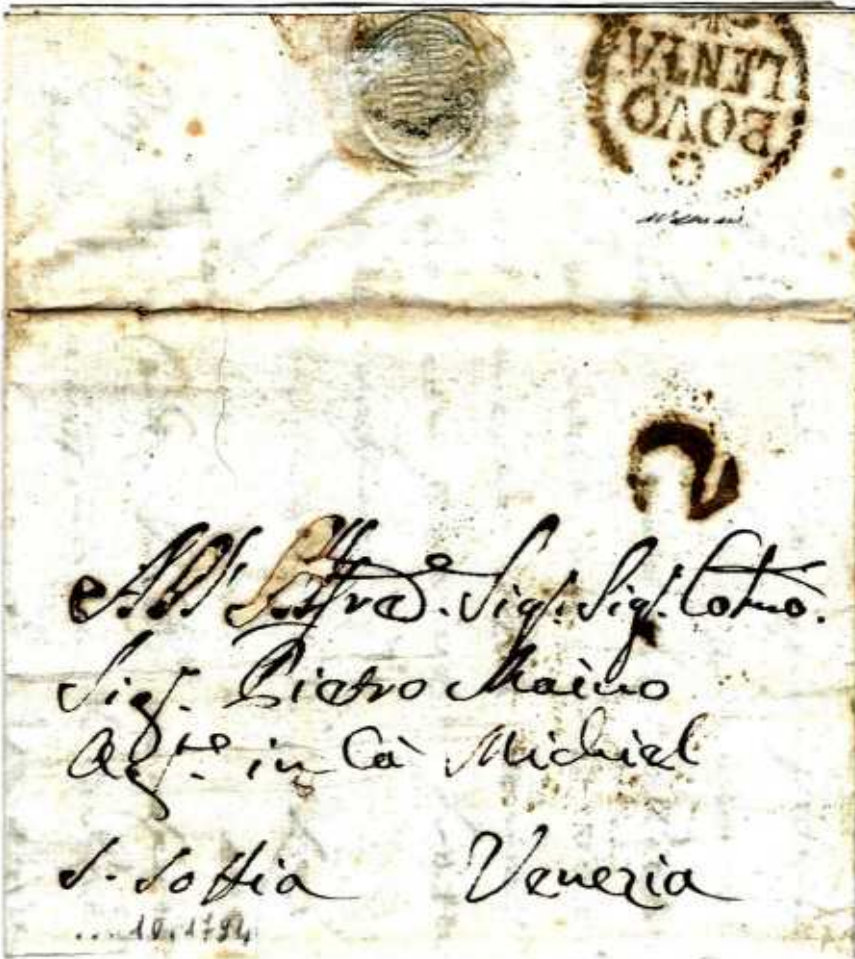 BOVO
LENTA
2
All' Sig.r Sig.r
Sig.r Pietro Maino
Ag.te in Cà Michiel
S. Soffia Venezia
10.1794